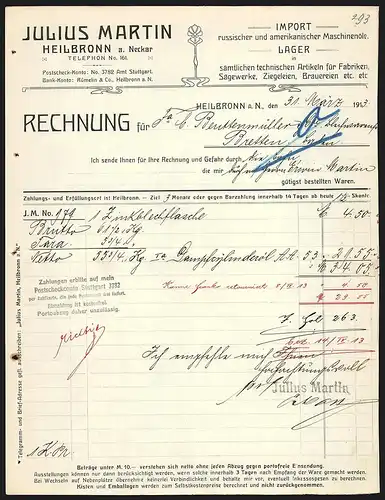 293
JULIUS MARTIN
HEILBRONN a. Neckar
TELEPHON No. 161.
Postscheck-Konto: No. 3782 Amt Stuttgart.
Bank-Konto: Rümelin & Co. Heilbronn a. N.
IMPORT
russischer und amerikanischer Maschinenöle.
LAGER
in
sämtlichen technischen Artikeln für Fabriken,
Sägewerke, Ziegeleien, Brauereien etc. etc
HEILBRONN a. N., den 31. März 1913
RECHNUNG für Fa. C. Beuttenmüller
Bretten
Ich sende Ihnen für Ihre Rechnung und Gefahr durch
die mir Martin
gütigst bestellten Waren.
Zahlungs- und Erfüllungsort ist Heilbronn. – Ziel 3 Monate oder gegen Barzahlung innerhalb 14 Tagen ab heute % Skonto.
J. M. No 179 1 Zinkblechflasche 4.50
Brutto
Tara
Netto Kg Ia 53.– 29.55
M 34.05
Zahlungen erbitte auf mein
Postscheckkonto Stuttgart 3782
Abmeldung ist kostenfrei
Portoabzug daher unzulässig.
263.
Ich empfehle mich Ihnen
Hochachtungsvoll
Julius Martin
Telegramm- und Brief-Adresse gefl. auszuschreiben: "Julius Martin, Heilbronn a. N."
Beträge unter M. 10.— verstehen sich netto ohne jeden Abzug gegen portofreie Einsendung.
Ausstellungen können nur dann berücksichtigt werden, wenn solche innerhalb 3 Tagen nach Empfang der Ware gemacht werden.
Bei Wechseln auf Nebenplätze übernehme keinerlei Verbindlichkeit und behalte mir vor, eventuell Inkassospesen nachzubelasten.
Kisten und Emballagen werden zum Selbstkostenpreise berechnet und nicht zurückgenommen.